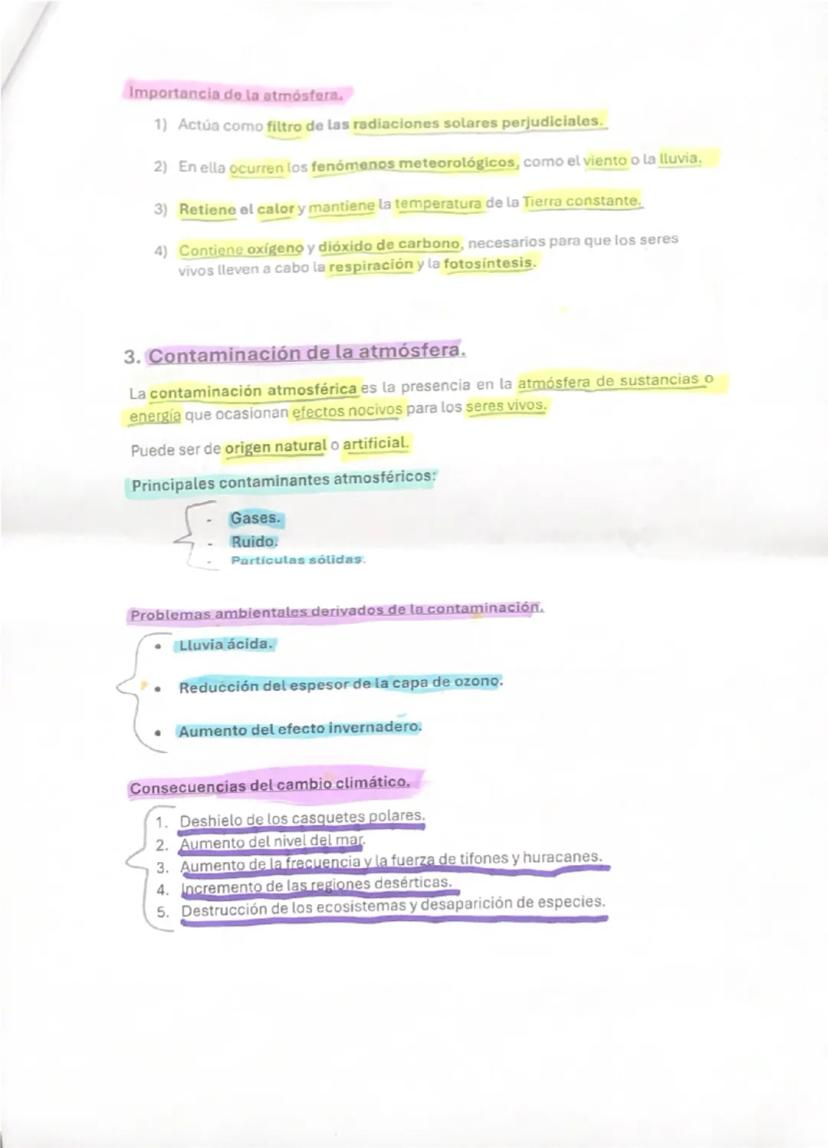 Importancia de la atmósfera.
1) Actúa como filtro de las radiaciones solares perjudiciales.
2) En ella ocurren los fenómenos meteorológicos, como el viento o la lluvia.
3) Retiene el calor y mantiene la temperatura de la Tierra constante.
4) Contiene oxígeno y dióxido de carbono, necesarios para que los seres
vivos lleven a cabo la respiración y la fotosíntesis.
3. Contaminación de la atmósfera.
La contaminación atmosférica es la presencia en la atmósfera de sustancias o
energía que ocasionan efectos nocivos para los seres vivos.
Puede ser de origen natural o artificial.
Principales contaminantes atmosféricos:
- Gases.
- Ruido.
- Partículas sólidas.
Problemas ambientales derivados de la contaminación.
• Lluvia ácida.
• Reducción del espesor de la capa de ozono.
• Aumento del efecto invernadero.
Consecuencias del cambio climático.
1. Deshielo de los casquetes polares.
2. Aumento del nivel del mar.
3. Aumento de la frecuencia y la fuerza de tifones y huracanes.
4. Incremento de las regiones desérticas.
5. Destrucción de los ecosistemas y desaparición de especies.